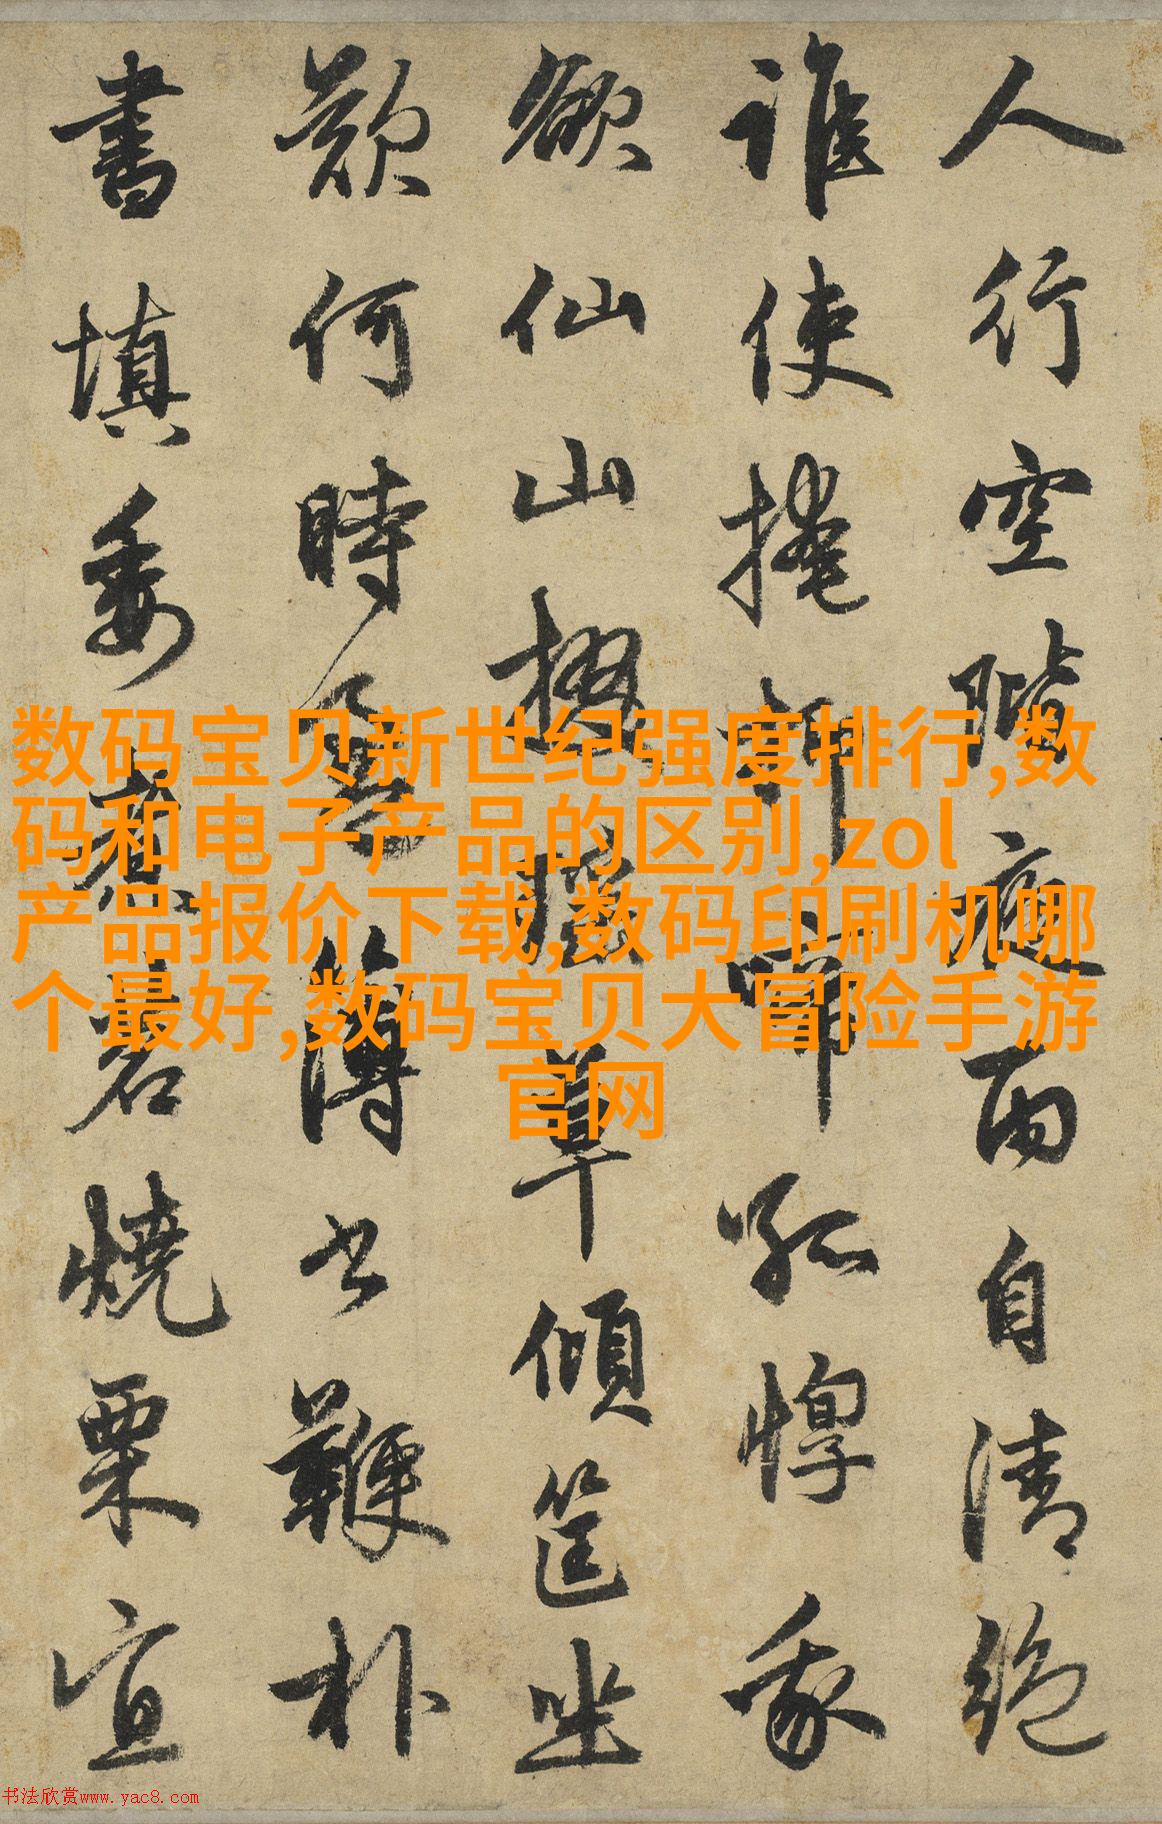 人行空階夜雨自清絶
誰使掩抑啼孤惸我
欲仙山掇瑤草傾筐坐
歎何時盈簿書鞭朴
晝填委煮茗燒栗宜
数码宝贝新世纪强度排行,数
码和电子产品的区别,zol
产品报价下载,数码印刷机哪
个最好,数码宝贝大冒险手游
官网
书法欣赏www.yac8.com